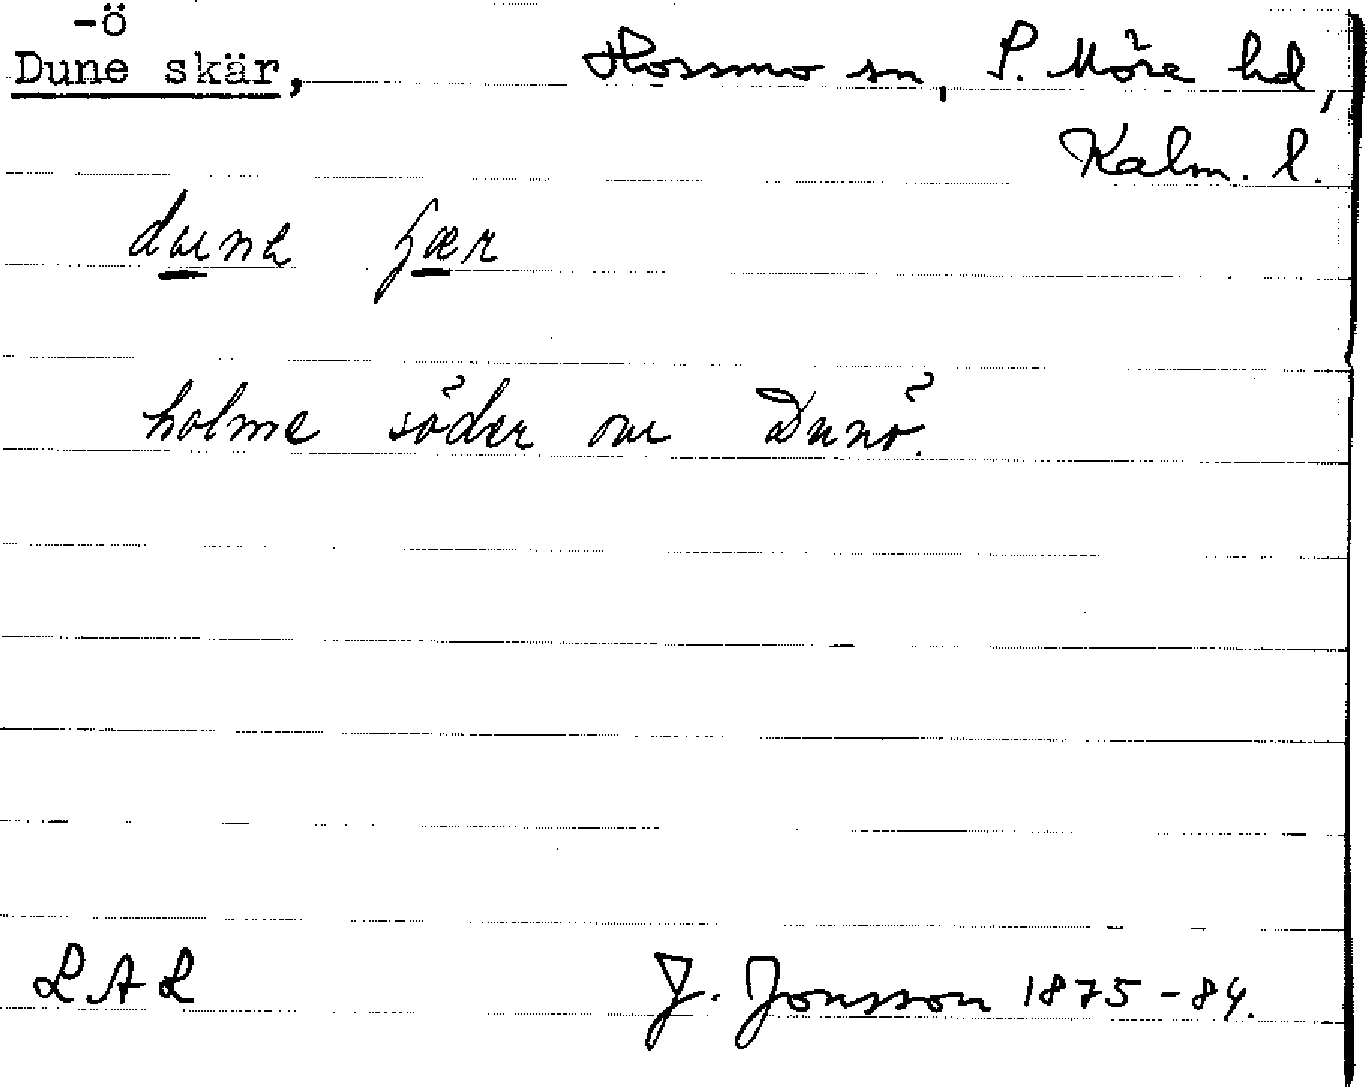 -ö
Dune skär, Hossmo sn, S. Möre hd,
Kalm. l.
dune ʃær
holme söder om Dunö.
LAL J. Jonsson 1875-84.